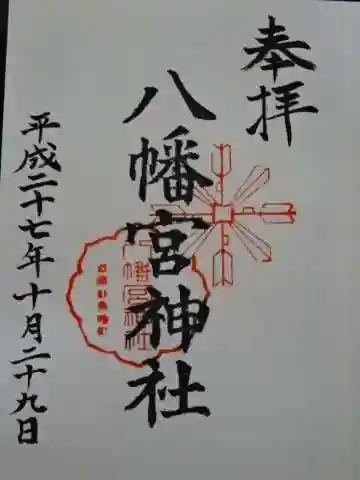 奉拝
八幡宮神社
八幡宮神社
平成二十七年十月二十九日